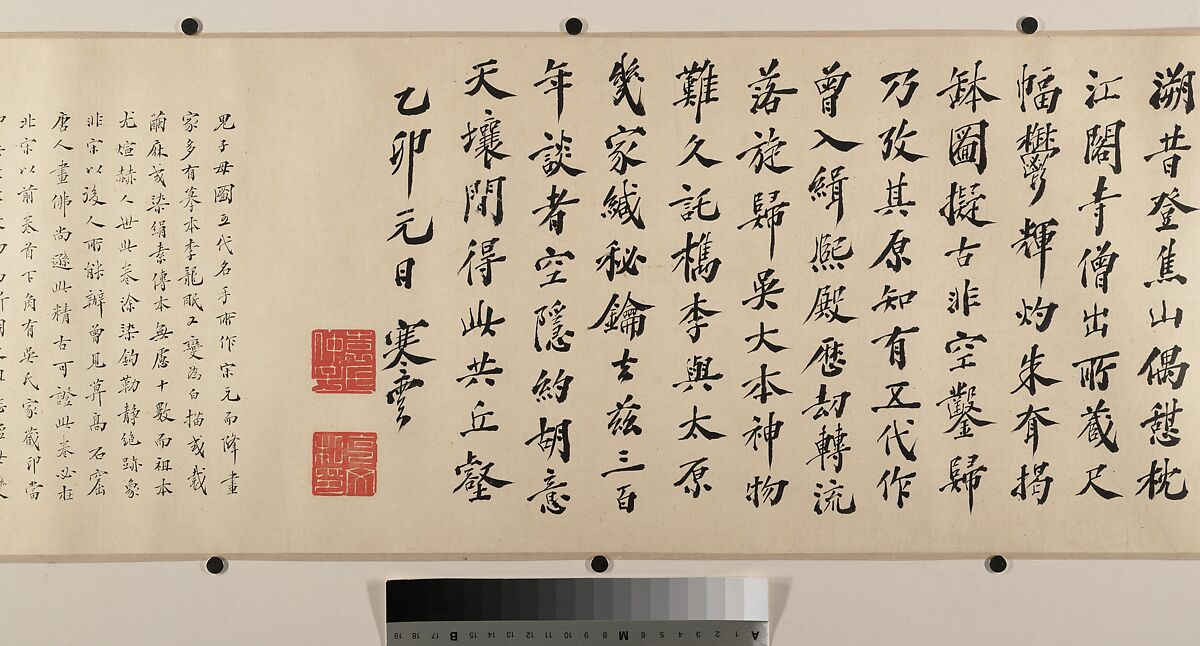 溯昔登焦山偶憩枕
江閣寺僧出所藏尺
幅欎鬱輝灼朱耷揭
缽圖擬古非空鑿歸
乃攷其原知有五代作
曾入緝熙殿歷劫轉流
落旋歸吳大本神物
難久託檇李與太原
幾家緘秘鑰去茲三百
年談者空隱約胡意
天壤間得此共丘壑
乙卯元日寒雲
鬼子母圖五代名手所作宗元而降畫
家多有摹本李龍眠又變為白描或裁
繭麻或染絹素傳本無慮十數而祖本
尤煊赫人世此卷涂染鉤勒靜絕跡象
非宗以後人所能辦曾見莫高石窟
唐人畫佛尚遜此精古可證此卷必在
北宗以前卷首下角有吳氏家藏印當